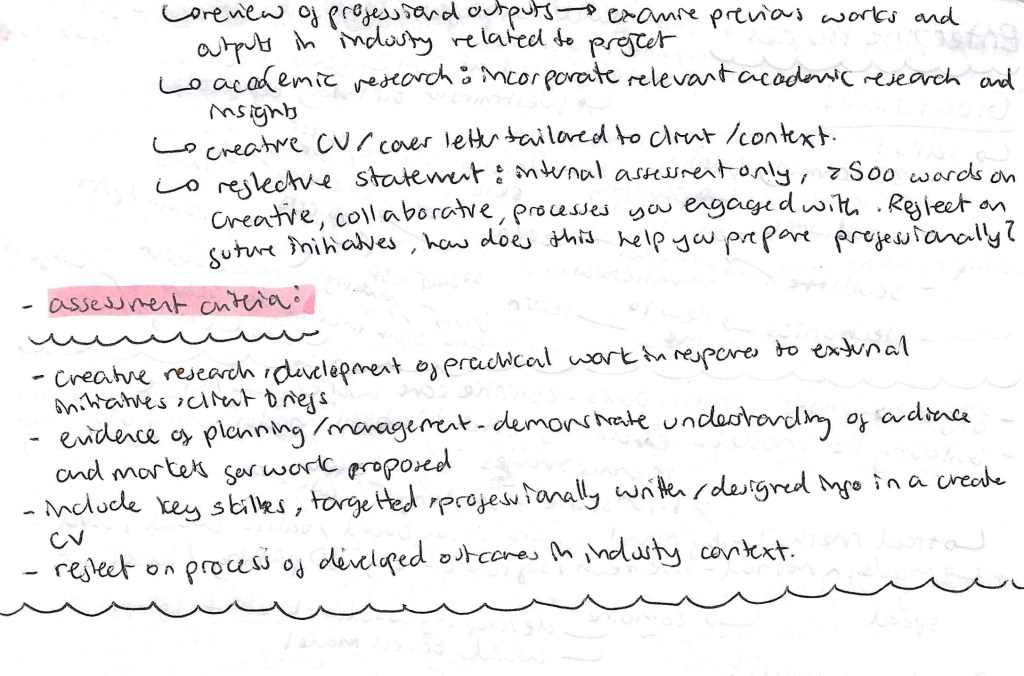 ↳ review of professional outputs → examine previous works and
outputs in industry related to project
↳ academic research: incorporate relevant academic research and
insights
↳ creative CV/cover letter tailored to client/context.
↳ reflective statement: internal assessment only, 2500 words on
creative, collaborative, processes you engaged with. Reflect on
future initiatives, how does this help you prepare professionally?
- assessment criteria:
- creative research, development of practical work in response to external
initiatives, client briefs
- evidence of planning/management - demonstrate understanding of audience
and markets for work proposed
- include key skills, targetted, professionally written/designed info in a create
CV
- reflect on process of developed outcomes in industry context.